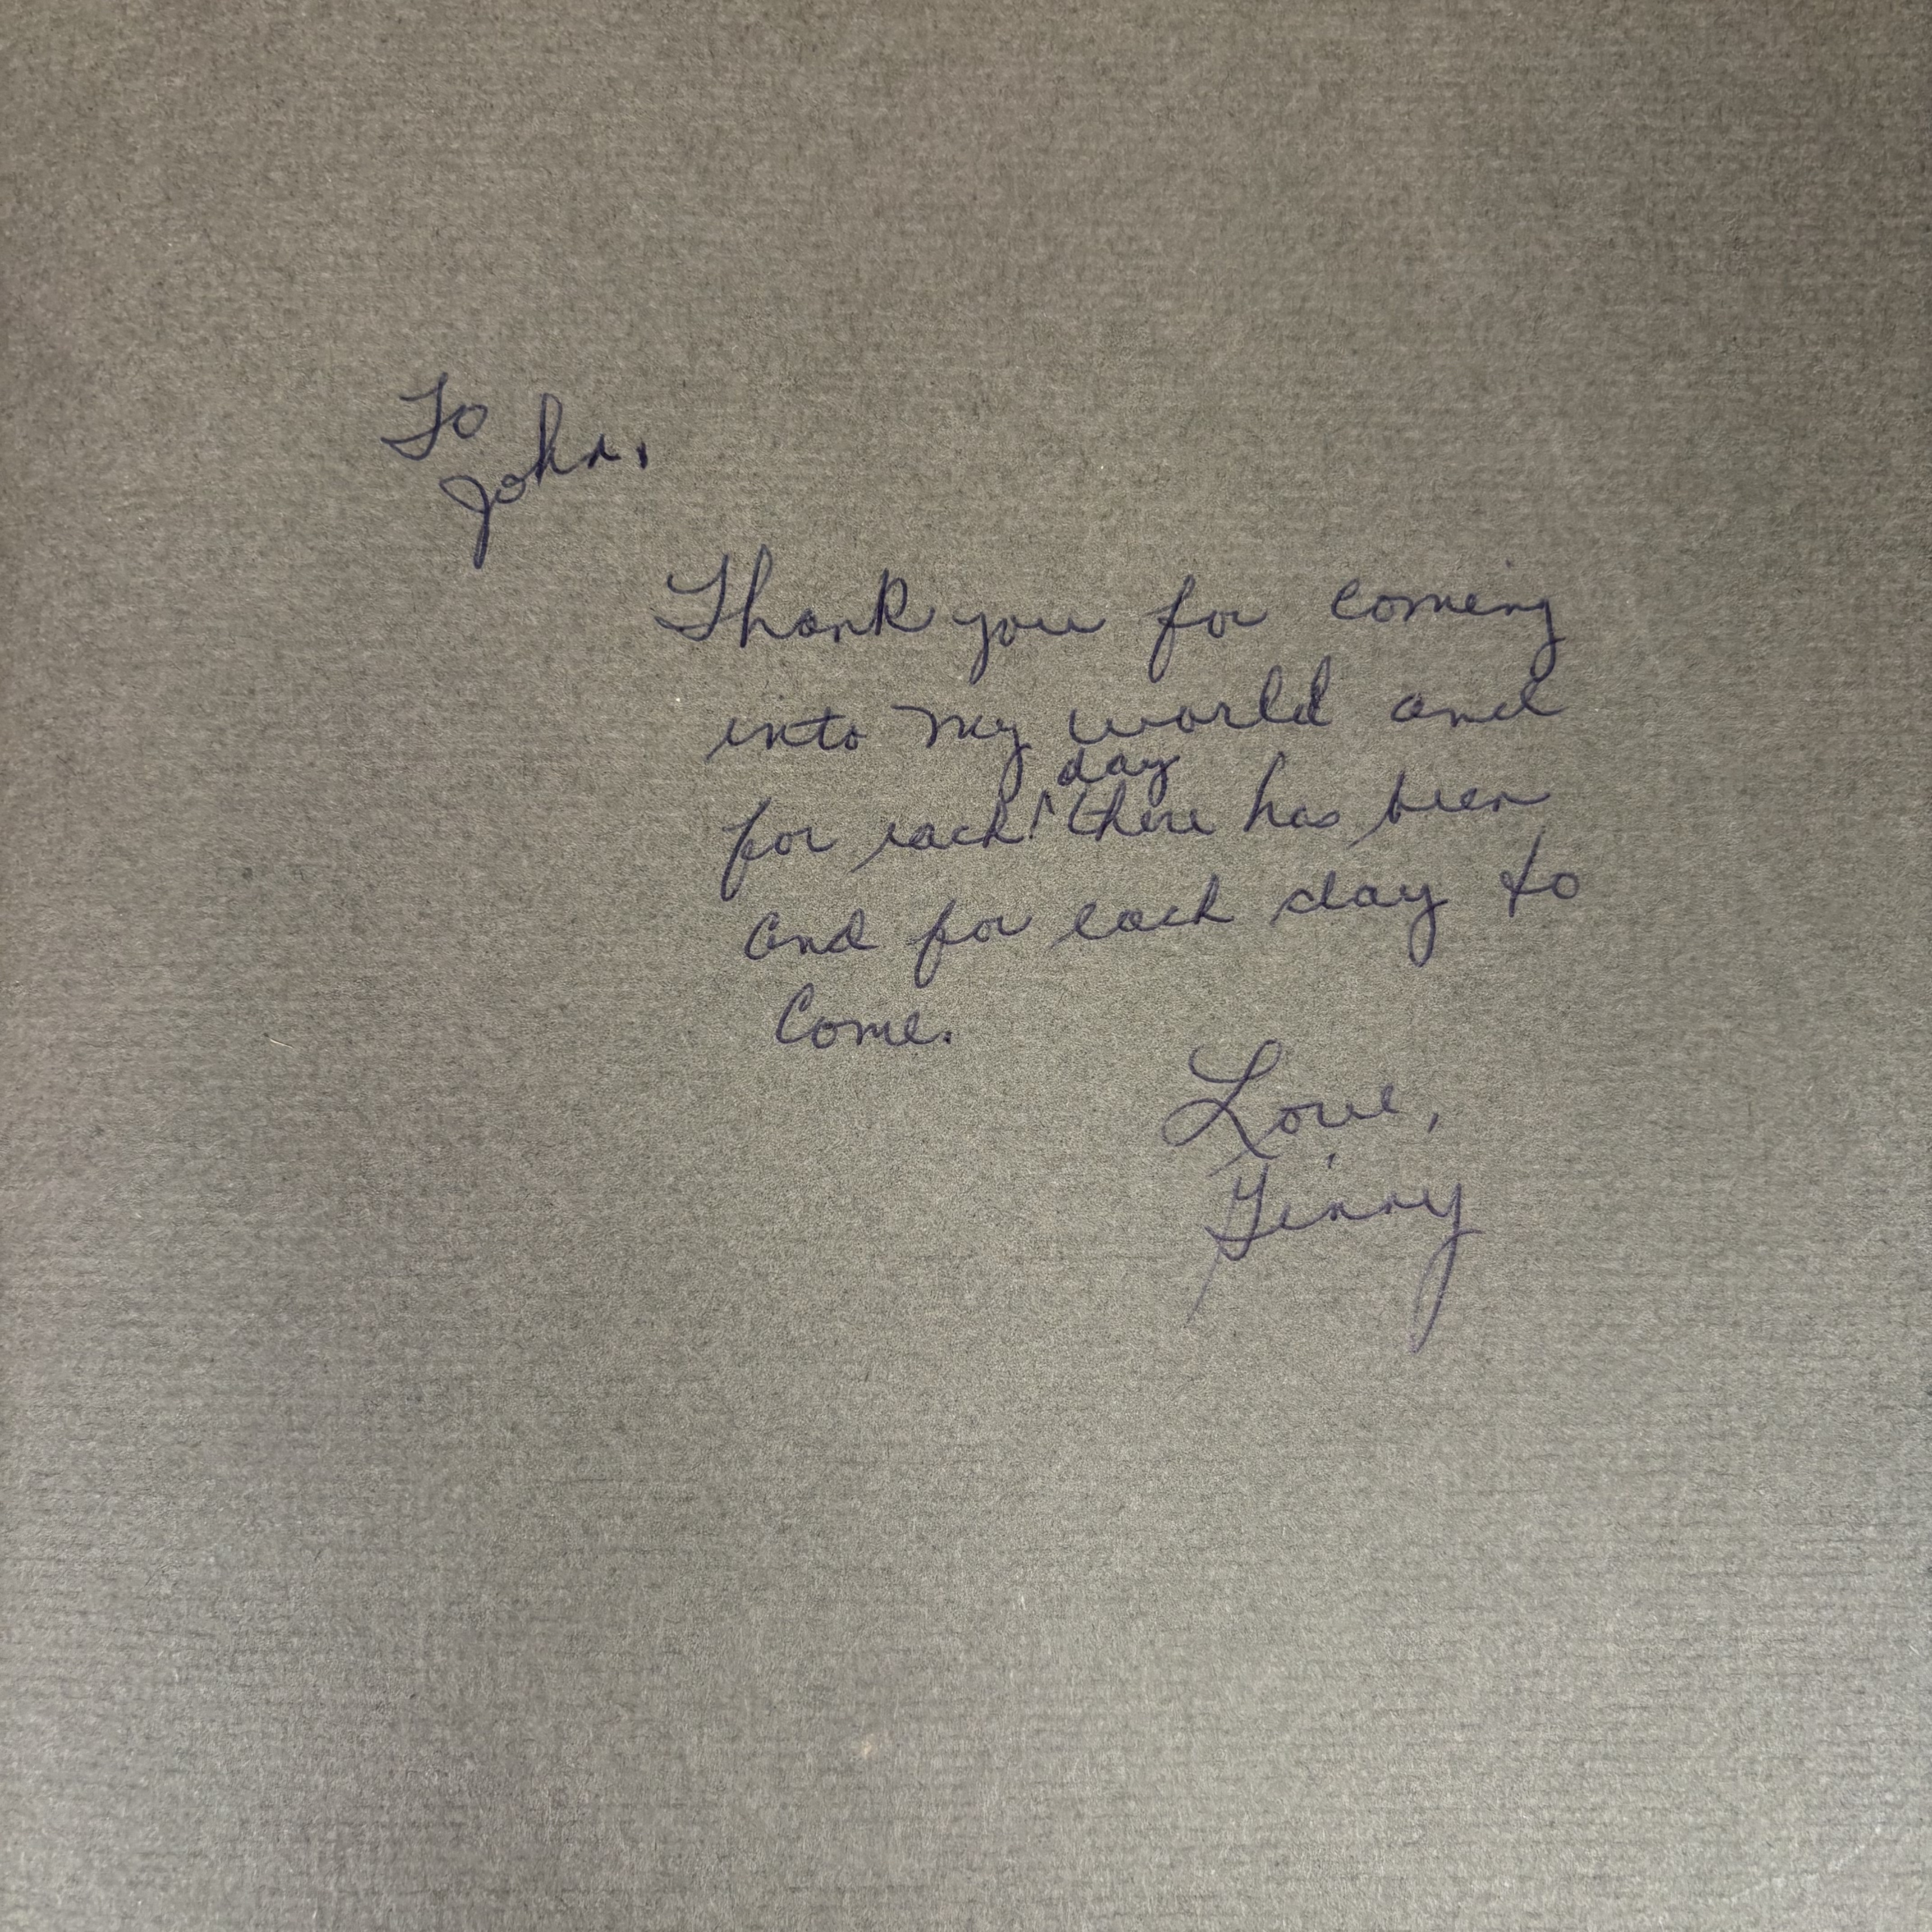 To
John,
Thank you for coming
into my world and
day
for each ^ there has been
and for each day to
Come.
Love,
Ginny